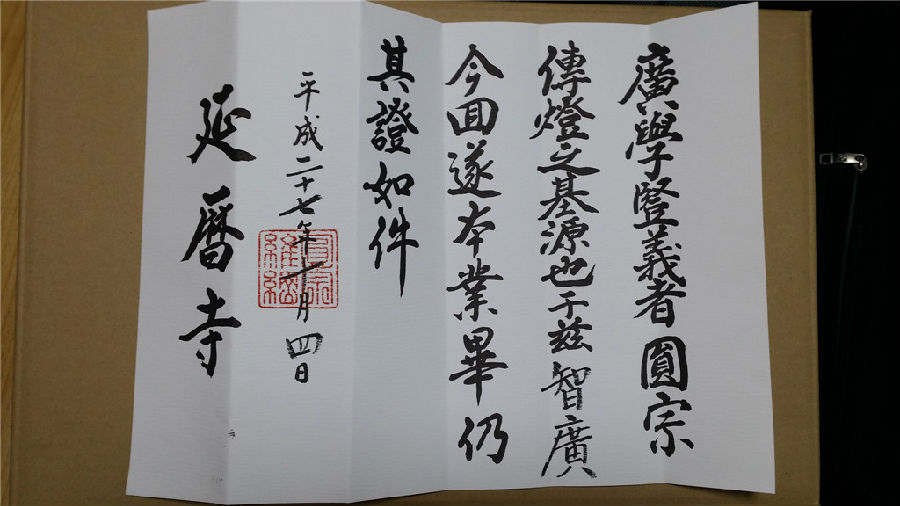 廣學豎義者圓宗
傳燈之基源也于茲智廣
今回遂本業畢仍
其證如件
平成二十七年十月四日
延暦寺